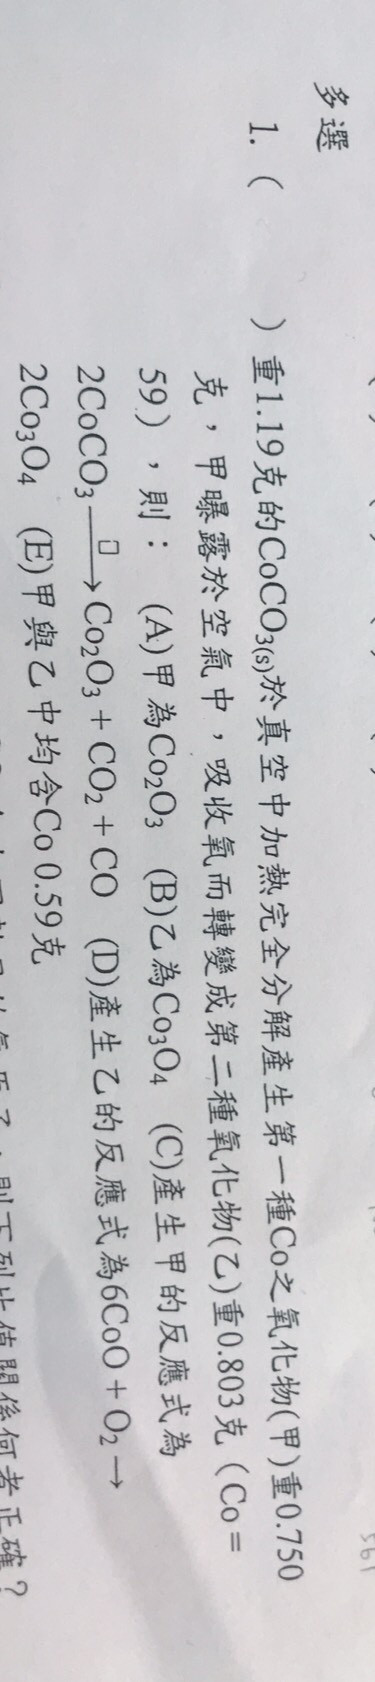 多選
1. (　　) 重1.19克的CoCO₃(s)於真空中加熱完全分解產生第一種Co之氧化物(甲)重0.750
克，甲曝露於空氣中，吸收氧而轉變成第二種氧化物(乙)重0.803克（Co=
59），則： (A)甲為Co₂O₃ (B)乙為Co₃O₄ (C)產生甲的反應式為
2CoCO₃ —□→ Co₂O₃ + CO₂ + CO (D)產生乙的反應式為6CoO + O₂ →
2Co₃O₄ (E)甲與乙中均含Co 0.59克
則下列比值關係何者正確？
561